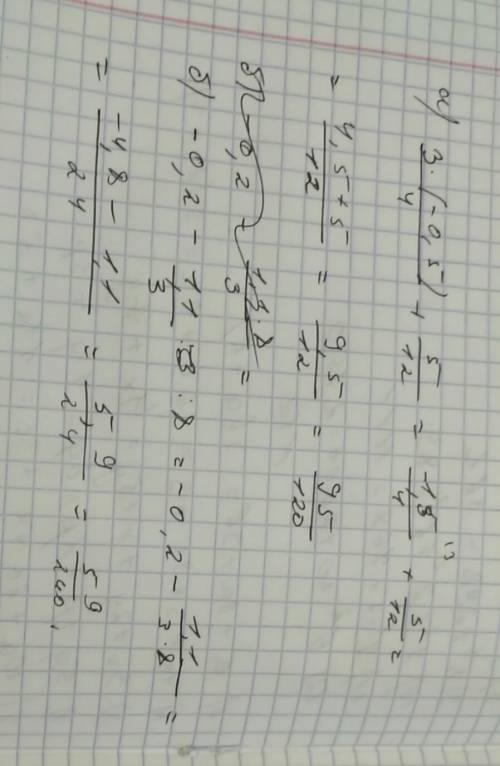 а) 3·(-0,5)/4 + 5/12 = -1,5/4 + 5/12 =
= 4,5+5/12 = 9,5/12 = 95/120
б) -0,2 - 1,1/3 : 8 = -0,2 - 1,1/3·8 =
= -4,8 - 1,1/24 = 5,9/24 = 59/240.